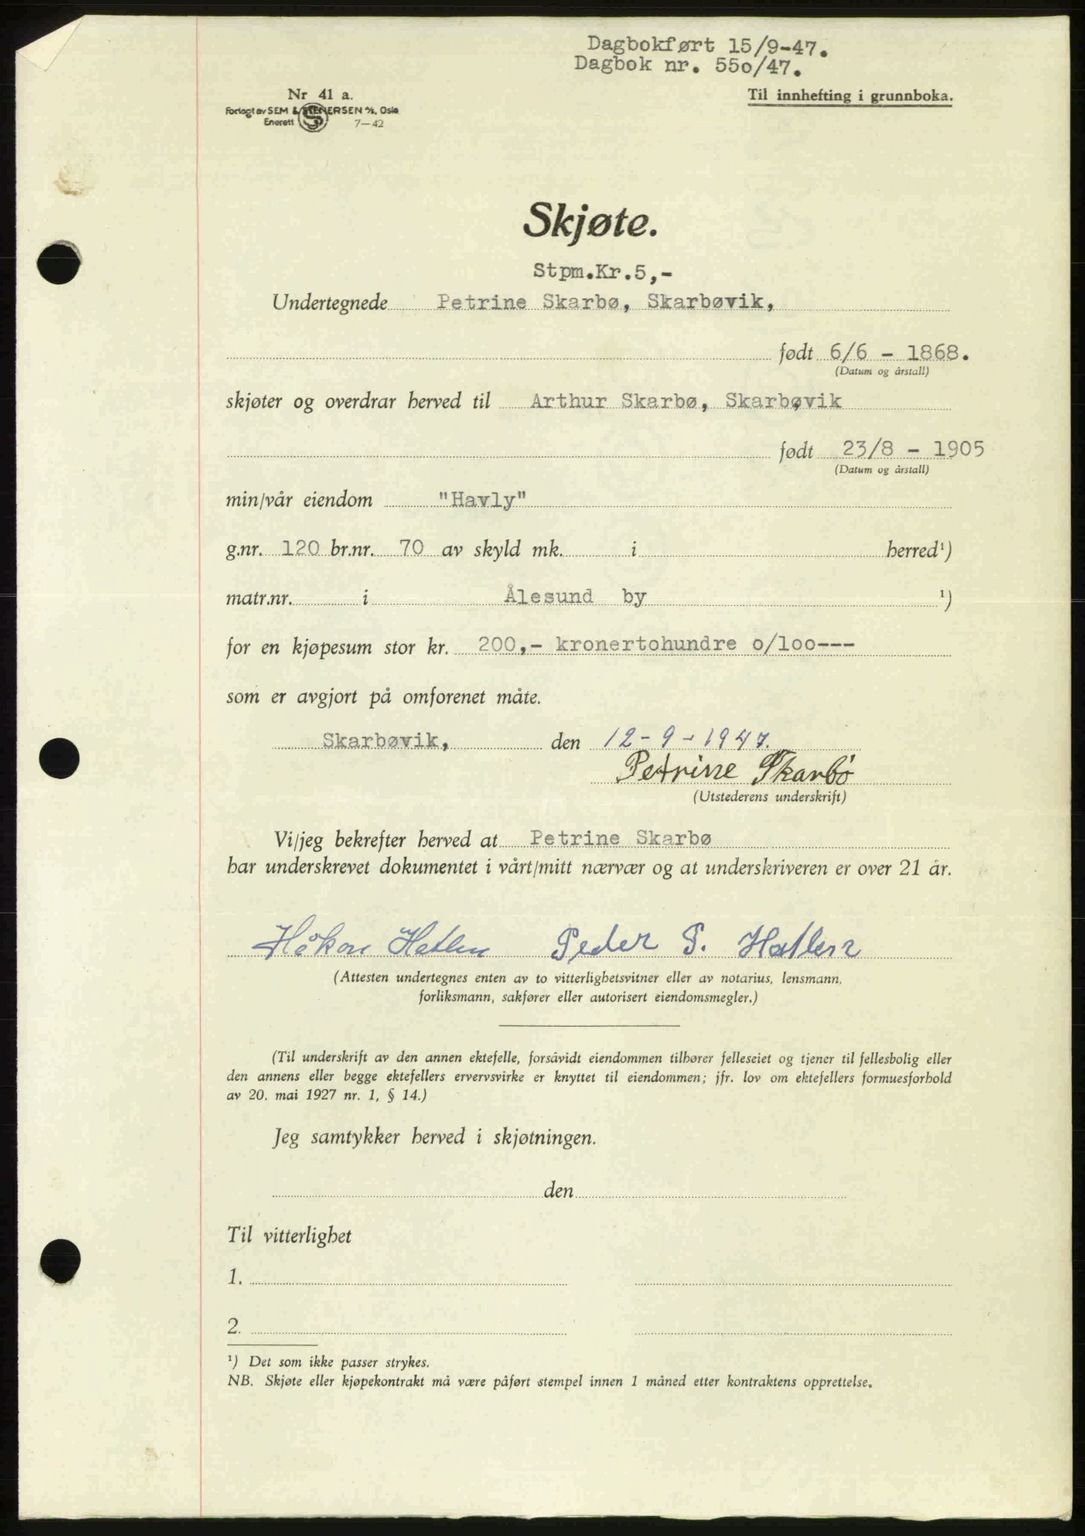 Dagbokført 15/9-47.
Dagbok nr. 550/47.
Nr 41 a.
Forlagt av SEM & STENERSEN A/S, Oslo
Enerett 7—42
Til innhefting i grunnboka.
Skjøte.
Stpm.Kr.5,-
Undertegnede Petrine Skarbø, Skarbøvik,
født 6/6 - 1868.
(Datum og årstall)
skjøter og overdrar herved til Arthur Skarbø, Skarbøvik
født 23/8 - 1905
(Datum og årstall)
min/vår eiendom "Havly"
g.nr. 120 br.nr. 70 av skyld mk. i herred¹)
matr.nr. i Ålesund by ¹)
for en kjøpesum stor kr. 200,- kronertohundre o/loo---
som er avgjort på omforenet måte.
Skarbøvik, den 12-9-1947.
Petrine Skarbø
(Utstederens underskrift)
Vi/jeg bekrefter herved at Petrine Skarbø
har underskrevet dokumentet i vårt/mitt nærvær og at underskriveren er over 21 år.
Håkon Hatlen Peder P. Hatlen
(Attesten undertegnes enten av to vitterlighetsvitner eller av notarius, lensmann,
forliksmann, sakfører eller autorisert eiendomsmegler.)
(Til underskrift av den annen ektefelle, forsåvidt eiendommen tilhører felleseiet og tjener til fellesbolig eller
den annens eller begge ektefellers ervervsvirke er knyttet til eiendommen; jfr. lov om ektefellers formuesforhold
av 20. mai 1927 nr. 1, § 14.)
Jeg samtykker herved i skjøtningen.
den
Til vitterlighet
1.
2.
¹) Det som ikke passer strykes.
NB. Skjøte eller kjøpekontrakt må være påført stempel innen 1 måned etter kontraktens opprettelse.